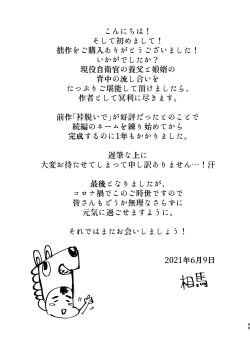 こんにちは！
そして初めまして！
拙作をご購入ありがとうございました！
いかがでしたか？
現役自衛官の義父と娘婿の
背中の流し合いを
たっぷりご堪能して頂けましたら、
作者として冥利に尽きます。
前作「裃脱いで」が好評だったとのことで
続編のネームを練り始めてから
完成するのに1年もかかりました。
遅筆な上に
大変お待たせてしまって申し訳ありません…！汗
最後となりましたが、
コロナ禍でこのご時世ですので
皆さんもどうか無理なさらずに
元気に過ごせますように。
それではまたお会いしましょう！
2021年6月9日
相馬